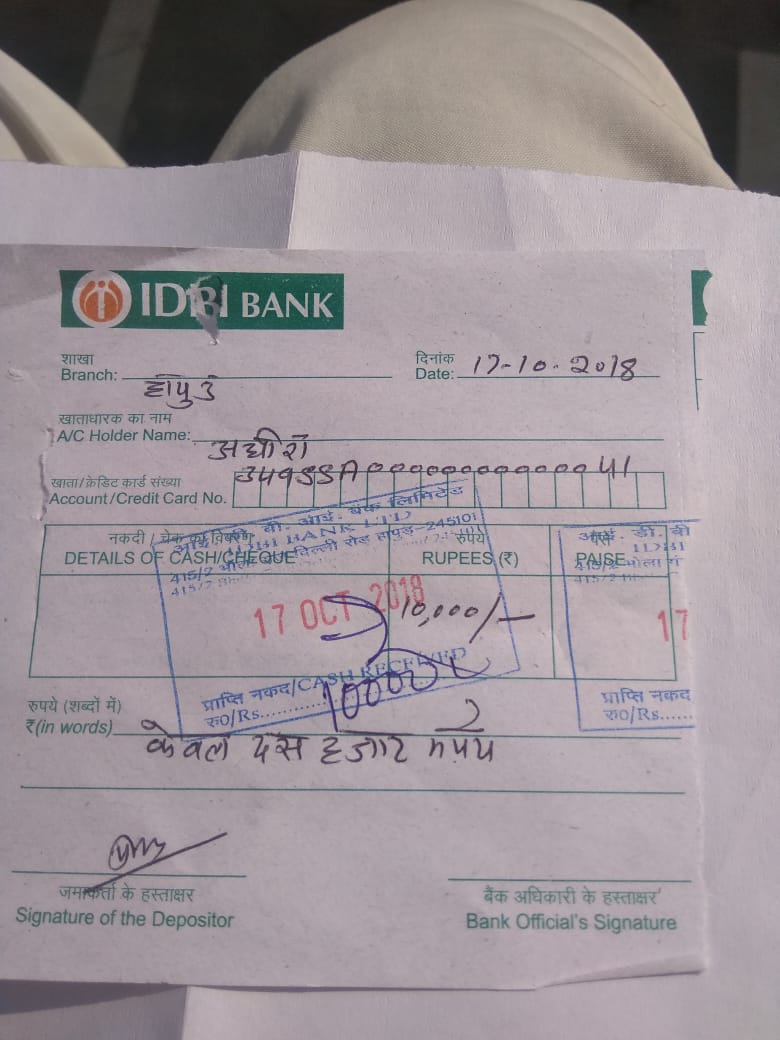 IDBI BANK
शाखा
Branch: हापुड
दिनांक
Date: 17-10-2018
खाताधारक का नाम
A/C Holder Name:
खाता/क्रेडिट कार्ड संख्या
Account/Credit Card No.
नकदी / चेक का विवरण
DETAILS OF CASH/CHEQUE
रुपये
RUPEES (₹)
पैसे
PAISE
आई. डी. बी. आई. बैंक लिमिटेड
IDBI BANK LTD
दिल्ली रोड हापुड-245101
17 OCT 2018
10,000/-
प्राप्ति नकद/CASH RECEIVED
रु0/Rs..............
10000
आई. डी. बी
IDBI
17
प्राप्ति नकद
रु0/Rs......
रुपये (शब्दों में)
₹(in words) केवल दस हजार रूपये
जमाकर्ता के हस्ताक्षर
Signature of the Depositor
बैंक अधिकारी के हस्ताक्षर
Bank Official's Signature